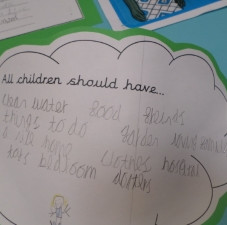 All children should have...
clean water food friends
things to do
a safe home clothes hospital
toys bedroom doctors